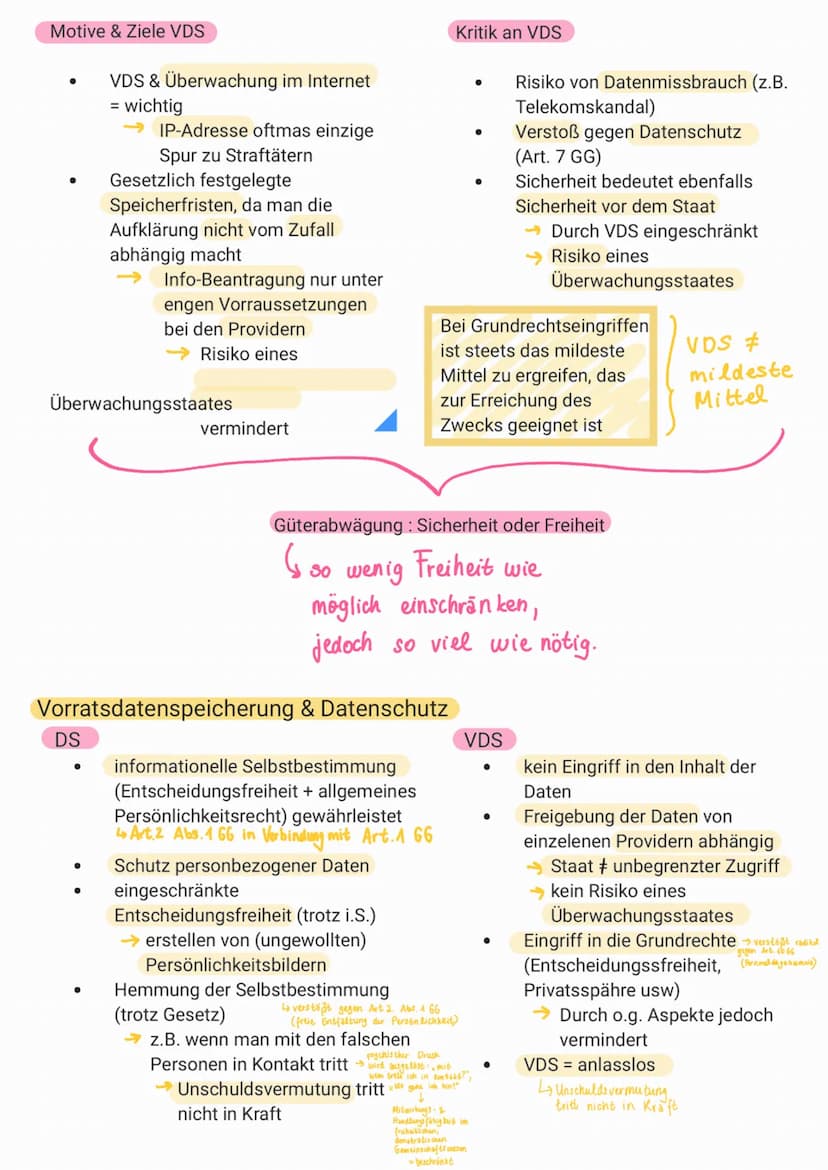 Motive & Ziele VDS
VDS & Überwachung im Internet
= wichtig
→ IP-Adresse oftmas einzige
Spur zu Straftätern
Gesetzlich festgelegte
Speicherfristen, da man die
Aufklärung nicht vom Zufall
abhängig macht
→ Info-Beantragung nur unter
engen Vorraussetzungen
bei den Providern
→ Risiko eines
Überwachungsstaates
vermindert
Kritik an VDS
Risiko von Datenmissbrauch (z.B.
Telekomskandal)
Verstoß gegen Datenschutz
(Art. 7 GG)
Sicherheit bedeutet ebenfalls
Sicherheit vor dem Staat
→ Durch VDS eingeschränkt
→ Risiko eines
Überwachungsstaates
Bei Grundrechtseingriffen
ist steets das mildeste
Mittel zu ergreifen, das
zur Erreichung des
Zwecks geeignet ist
VDS ≠
mildeste
Mittel
Güterabwägung : Sicherheit oder Freiheit
↳ so wenig Freiheit wie
möglich einschränken,
jedoch so viel wie nötig.
Vorratsdatenspeicherung & Datenschutz
DS
informationelle Selbstbestimmung
(Entscheidungsfreiheit + allgemeines
Persönlichkeitsrecht) gewährleistet
↳ Art.2 Abs.1 GG in Verbindung mit Art.1 GG
Schutz personbezogener Daten
eingeschränkte
Entscheidungsfreiheit (trotz i.S.)
→ erstellen von (ungewollten)
Persönlichkeitsbildern
Hemmung der Selbstbestimmung
(trotz Gesetz)
↳ verstößt gegen Art 2. Abs. 1 GG
(freie Entfaltung der Persönlichkeit)
→ z.B. wenn man mit den falschen
Personen in Kontakt tritt
→ psychischer Druck
wird ausgeübt: „mit
wem trete ich in Kontakt?",
„wo gehe ich hin?"
↓
Mitwirkungs- &
Handlungsfähigkeit im
freiheitlichen,
demokratischen
Gemeinschaftswesen
= beschränkt
→ Unschuldsvermutung tritt
nicht in Kraft
VDS
kein Eingriff in den Inhalt der
Daten
Freigebung der Daten von
einzelenen Providern abhängig
→ Staat ≠ unbegrenzter Zugriff
→ kein Risiko eines
Überwachungsstaates
Eingriff in die Grundrechte
→ verstößt radikal
gegen Art. 10 GG
(Fernmeldegeheimnis)
(Entscheidungssfreiheit,
Privatsspähre usw)
→ Durch o.g. Aspekte jedoch
vermindert
VDS = anlasslos
↳ Unschuldsvermutung
tritt nicht in Kraft